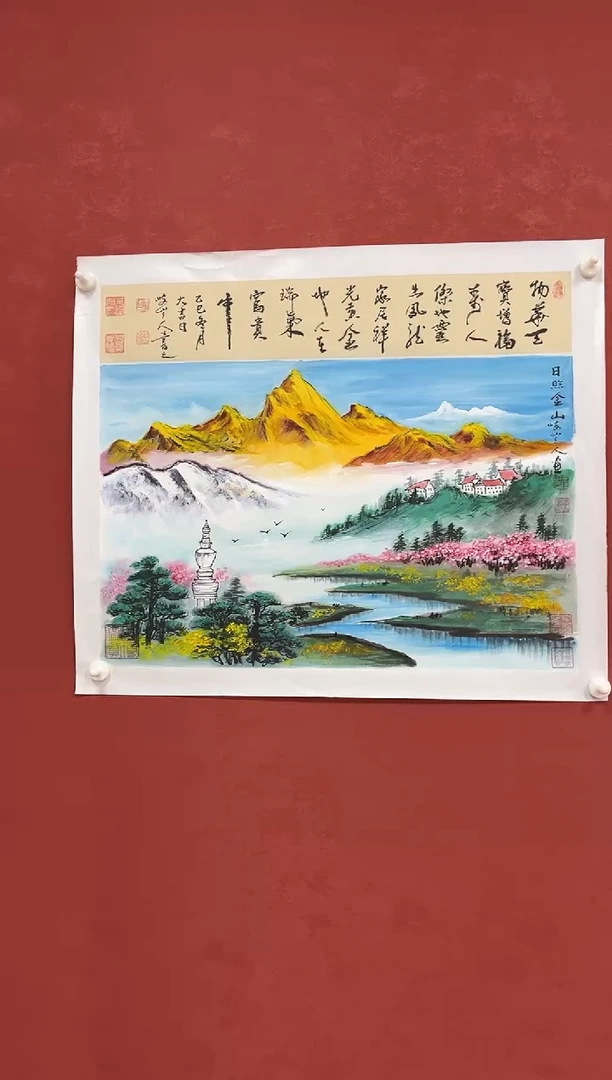 物華天
寶增福
壽人
傑地靈
生風龍
家居祥
光黄金
地人在
瑞氣
富貴
中
乙巳冬月
大吉日
山人書之
日照金山 山人画